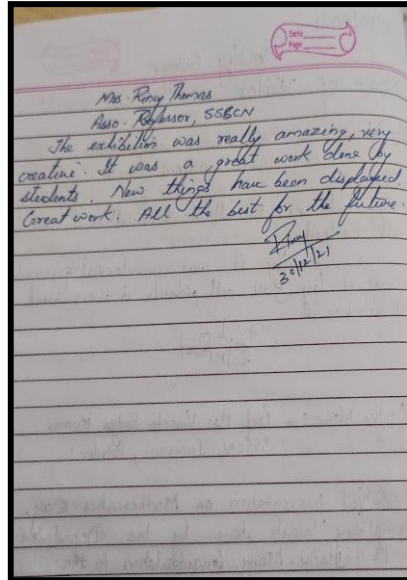 Date
Page
Mrs. Rincy Thomas
Asso. Professor, SSBCN
The exhibition was really amazing, very
creative. It was a great work done by
students. New things have been displayed.
Great work. All the best for the future.
Rincy
30/12/21